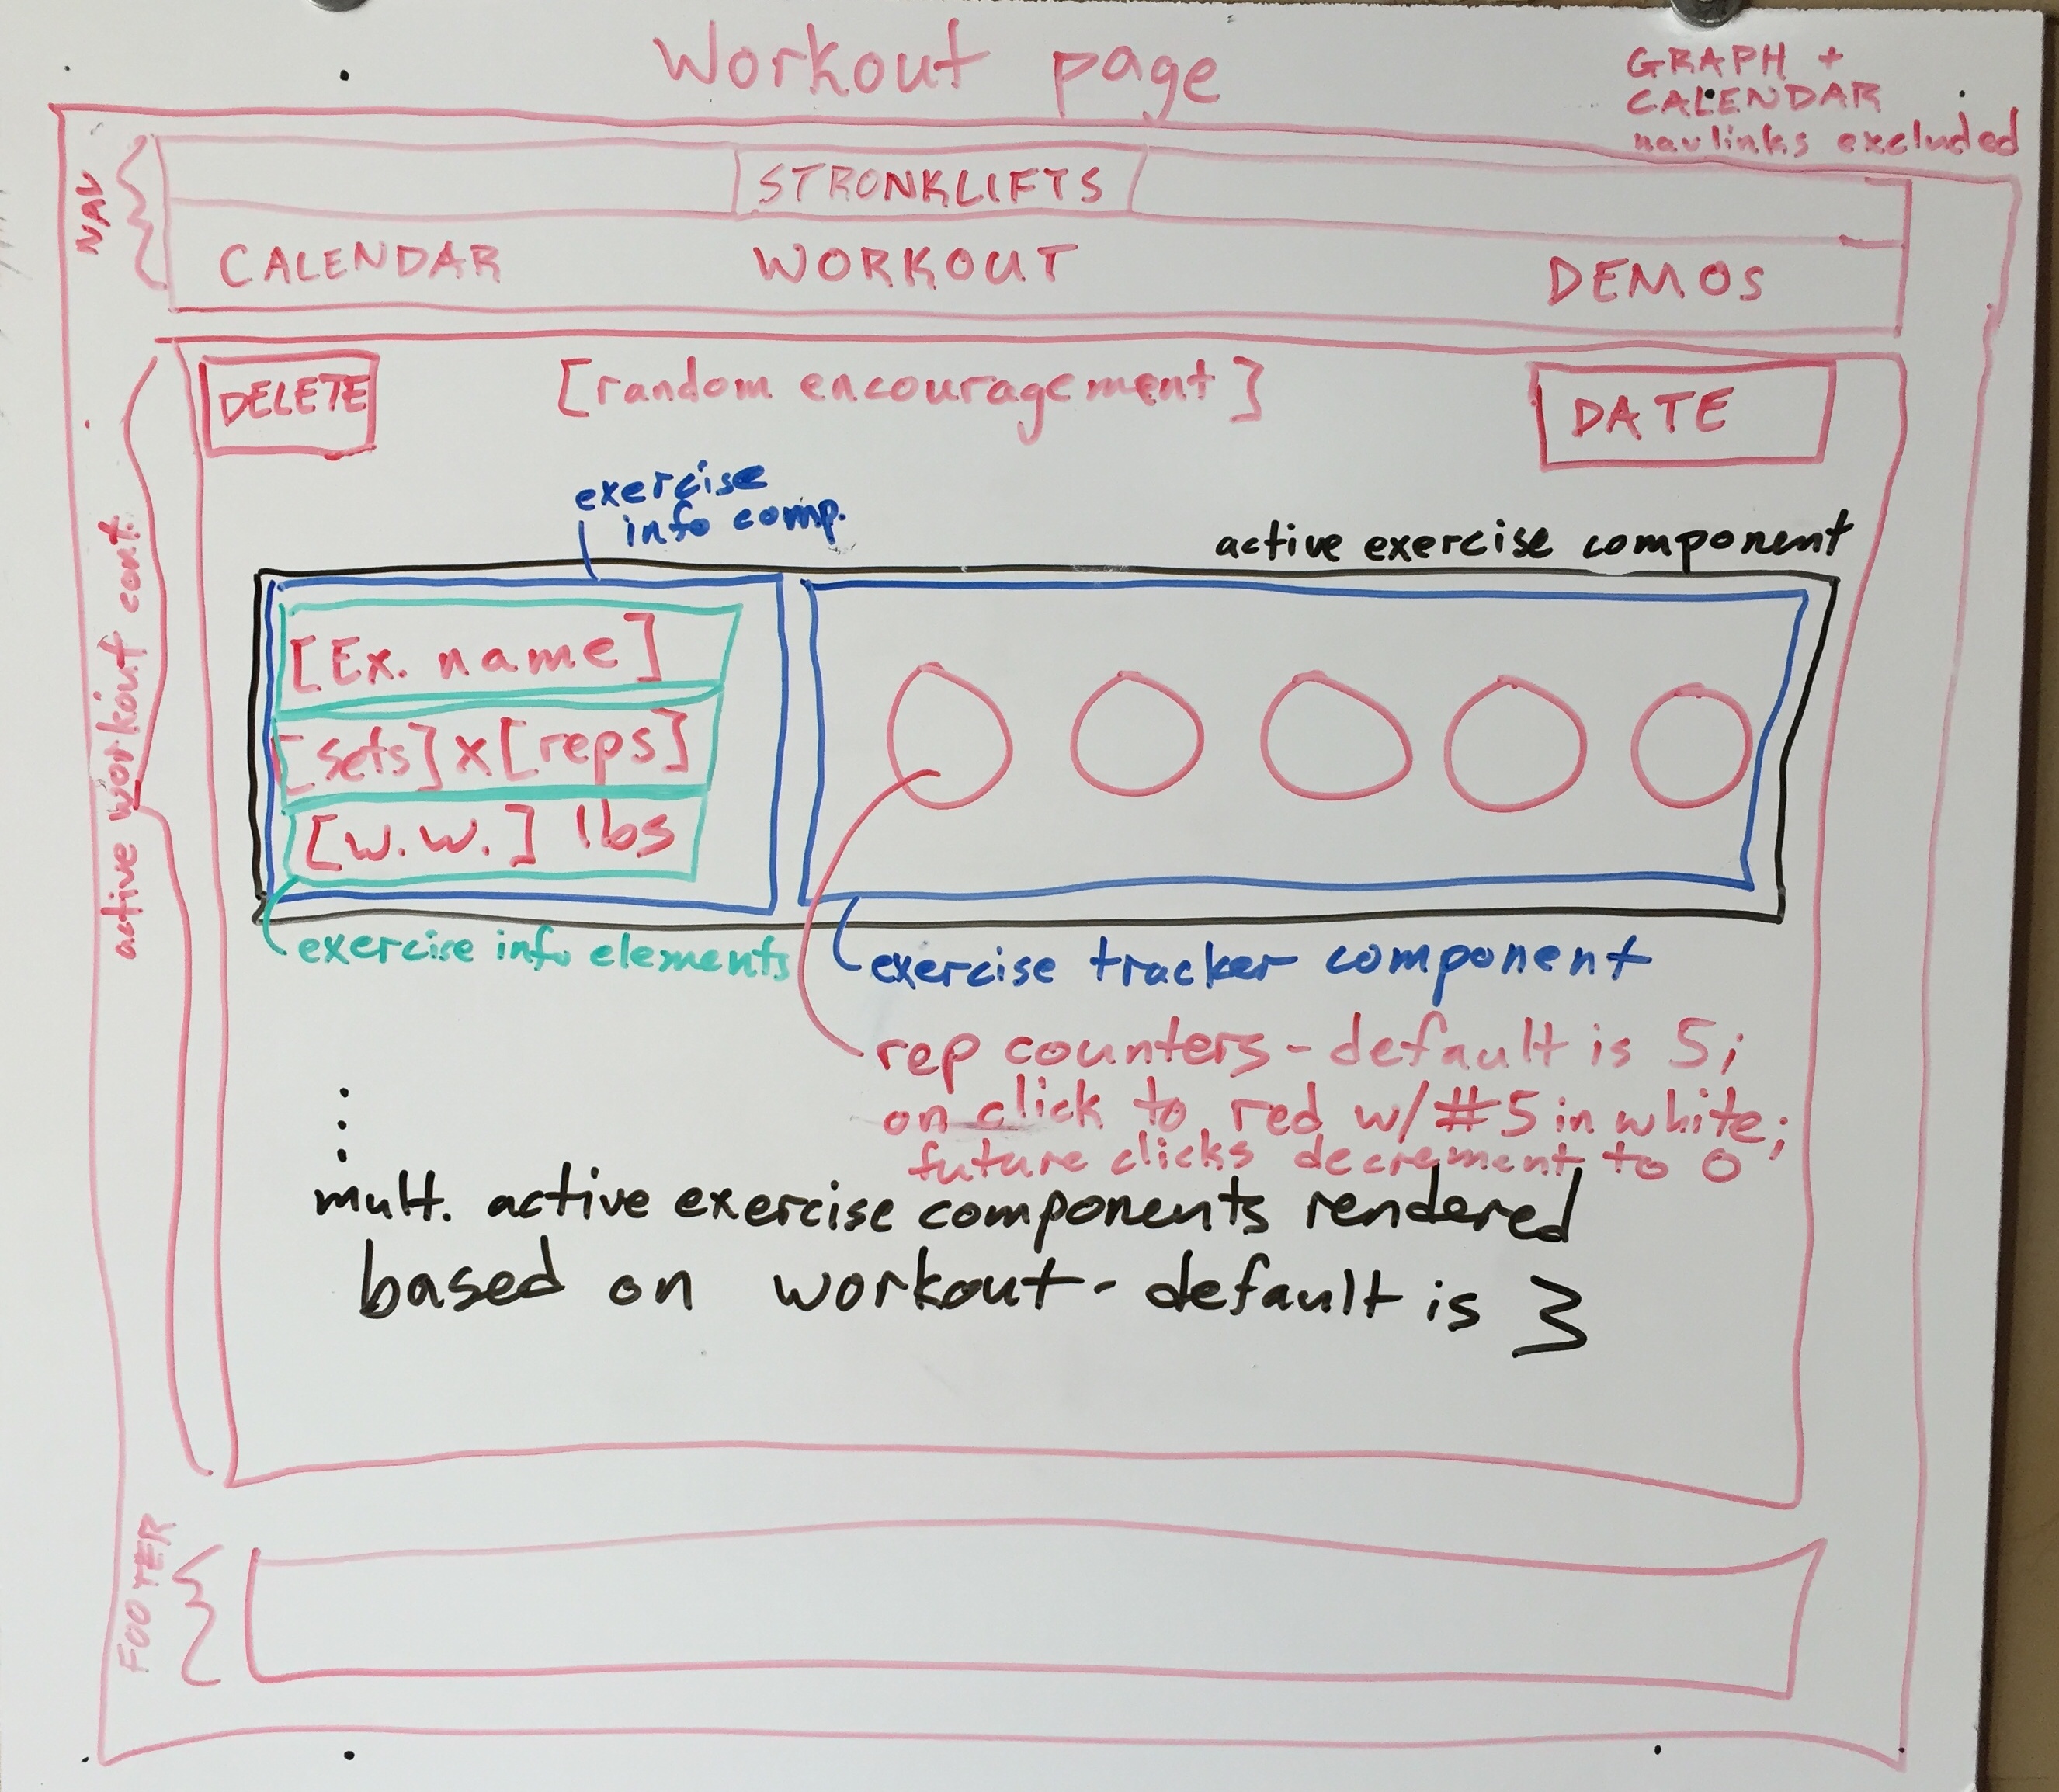 Workout page
GRAPH +
CALENDAR
navlinks excluded
NAV
STRONKLIFTS
CALENDAR WORKOUT DEMOS
DELETE [random encouragement] DATE
active workout cont.
exercise
info comp.
active exercise component
[Ex. name]
[sets] x [reps]
[w.w.] lbs
exercise info elements
exercise tracker component
rep counters - default is 5;
on click to red w/ #5 in white;
future clicks decrement to 0
mult. active exercise components rendered
based on workout - default is 3
FOOTER